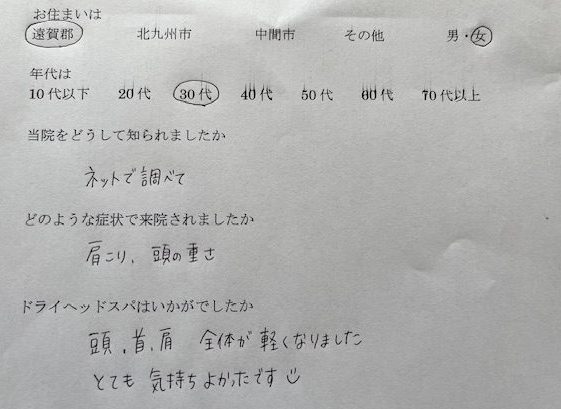 お住まいは
遠賀郡 北九州市 中間市 その他 男・女
年代は
10代以下 20代 30代 40代 50代 60代 70代以上
当院をどうして知られましたか
ネットで調べて
どのような症状で来院されましたか
肩こり、頭の重さ
ドライヘッドスパはいかがでしたか
頭、首、肩 全体が軽くなりました
とても気持ちよかったです